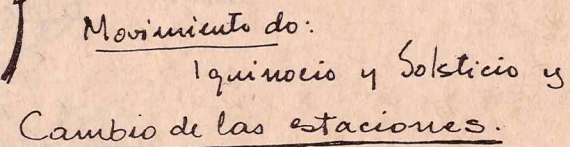 Movimiento do:
Iquinocio y Solsticio y
Cambio de las estaciones.